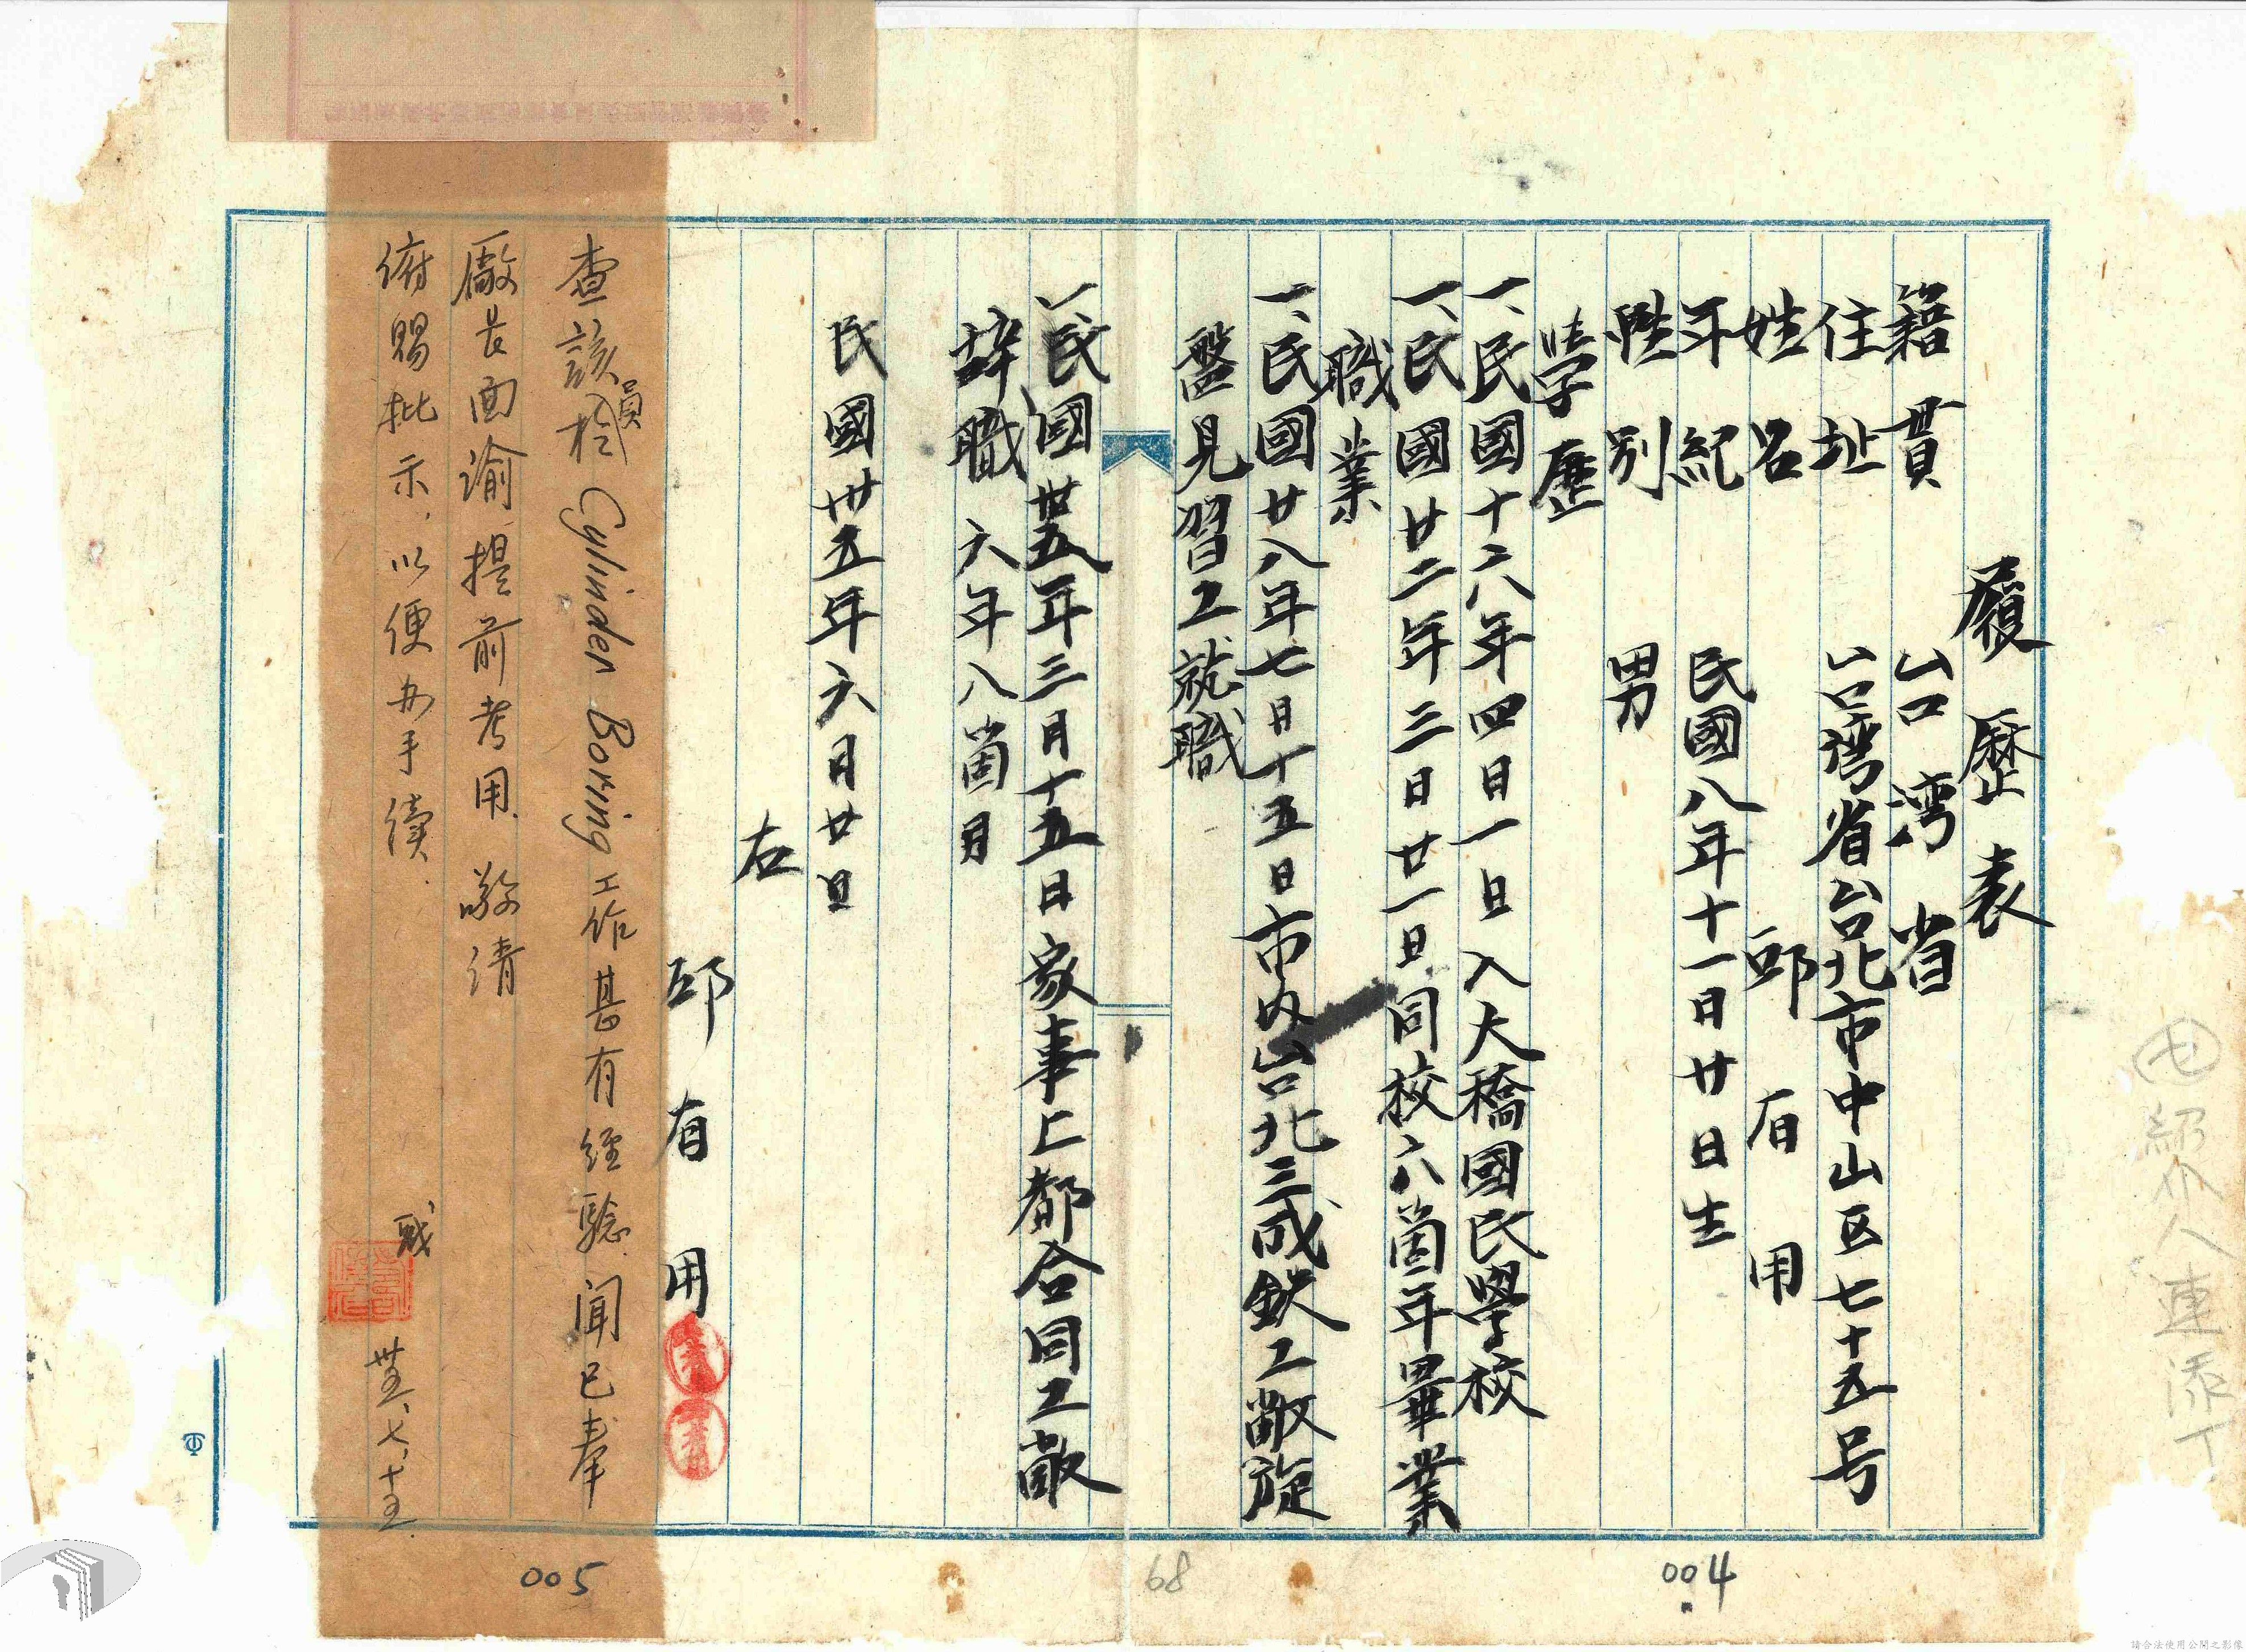 履歷表
籍貫 台湾省
住址 台湾省台北市中山区七十五号
姓名 邱有用
年紀 民國八年十一日廿日生
性別 男
學歷
一、民國十六年四日一日入大橋國民學校
一、民國廿二年三日廿一日同校六箇年畢業
職業
一、民國廿八年七日十五日市内台北三成鉄工廠旋
盤見習工就職
一、民國卅五年三月十五日家事上都合同工廠
辞職 六年八箇月
民國卅五年六月廿日
右
邱有用
查該員於 Cylinder Boring 工作甚有經驗、聞已奉
廠長面諭提前考用、敬請
俯賜批示、以便办手續.
卅五、七、十五.
紹介人連添丁
004
68
005
請合法使用公開之影像